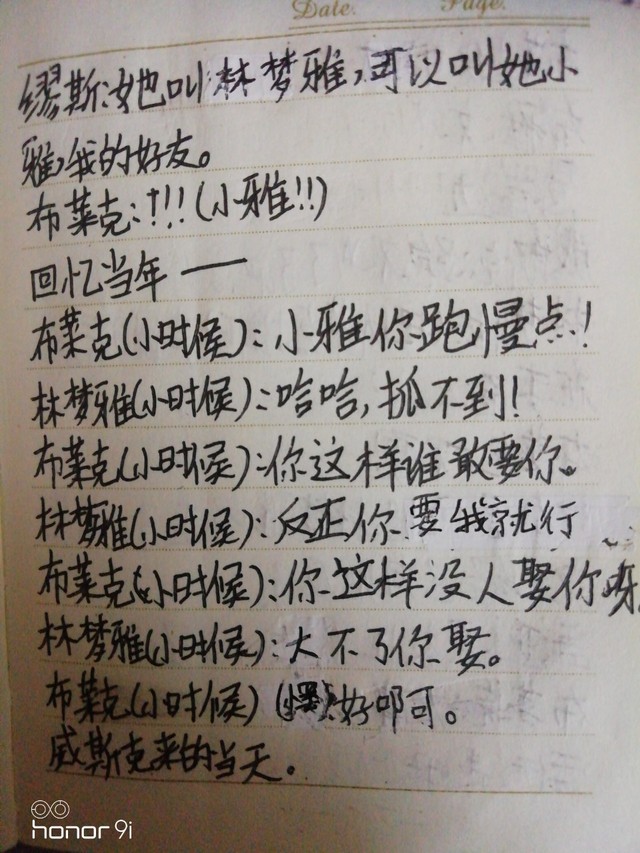 Date. Page.
缪斯:她叫林梦雅,可以叫她小
雅,我的好友。
布莱克:!!!(小雅!!)
回忆当年——
布莱克(小时候):小雅你跑慢点!
林梦雅(小时候):哈哈,抓不到!
布莱克(小时候):你这样谁敢要你。
林梦雅(小时候):反正你要我就行
布莱克(小时候):你这样没人娶你呀
林梦雅(小时候):大不了你娶。
布莱克(小时候)好叩可。
威斯克来的当天。
honor 9i